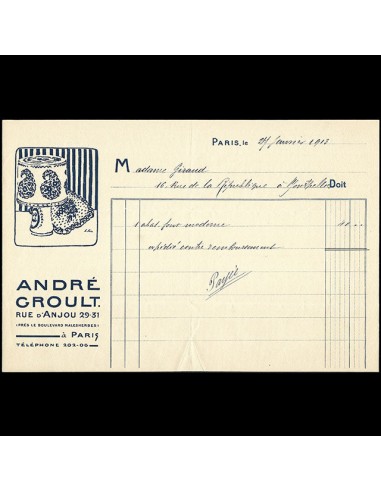 PARIS, LE 27 Janvier 1913
Madame Giraud
16 Rue de la République à Doit
1 abat-jour moderne 40 ..
expédié contre remboursement
Payé
ANDRÉ
GROULT.
RUE D'ANJOU 29-31
(PRÈS LE BOULEVARD MALESHERBES)
à PARIS
TÉLÉPHONE 202-06